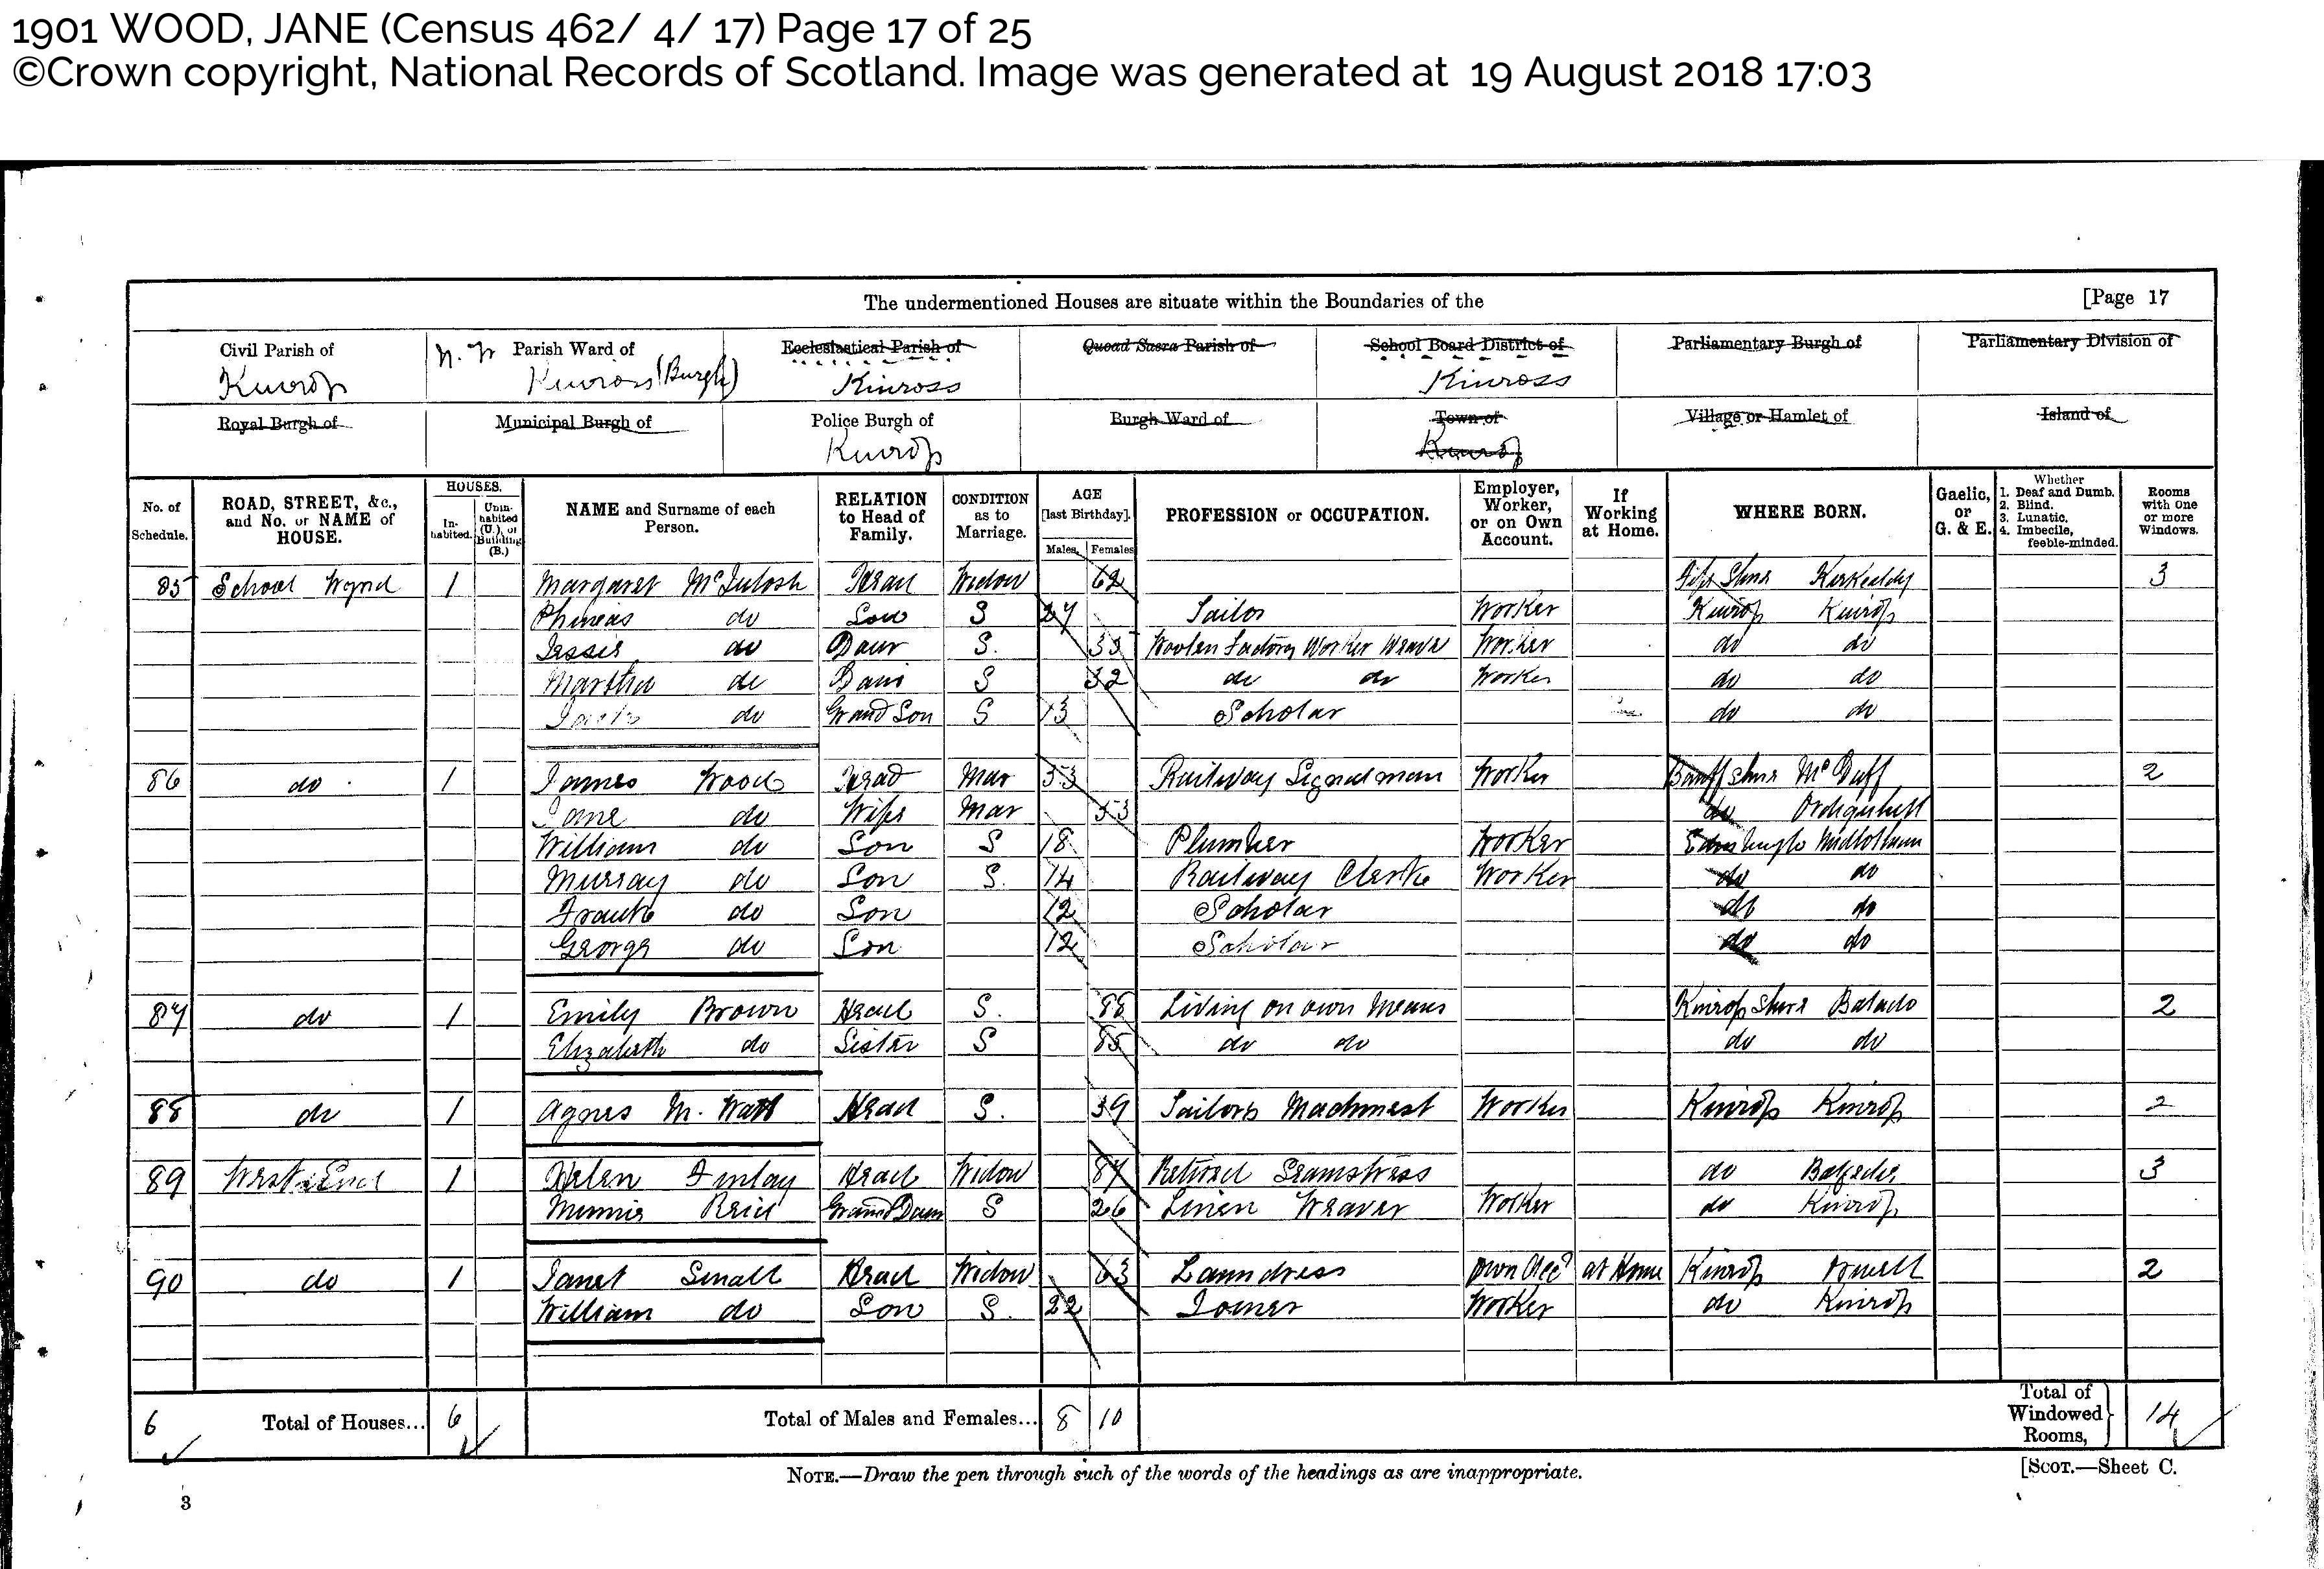 1901 WOOD, JANE (Census 462/ 4/ 17) Page 17 of 25
©Crown copyright, National Records of Scotland. Image was generated at 19 August 2018 17:03
The undermentioned Houses are situate within the Boundaries of the [Page 17
Civil Parish of Parish Ward of Ecclesiastical Parish of Quoad Sacra Parish of School Board District of Parliamentary Burgh of Parliamentary Division of
Kinross Kinross (Burgh) Kinross Kinross
Royal Burgh of Municipal Burgh of Police Burgh of Burgh Ward of Town of Village or Hamlet of Island of
Kinross Kinross
No. of Schedule. ROAD, STREET, &c., and No. or NAME of HOUSE. HOUSES. Inhabited. Uninhabited (U.), or Building (B.) NAME and Surname of each Person. RELATION to Head of Family. CONDITION as to Marriage. AGE [last Birthday]. Males. Females PROFESSION or OCCUPATION. Employer, Worker, or on Own Account. If Working at Home. WHERE BORN. Gaelic, or G. & E. Whether 1. Deaf and Dumb. 2. Blind. 3. Lunatic. 4. Imbecile, feeble-minded. Rooms with One or more Windows.
85 School Wynd 1 Margaret McIntosh Head Widow 62 Fife Shire Kirkcaldy 3
Phineas do Son S 27 Worker Kinross Kinross
Jessie do Daur S. 35 Woolen Factory Worker Weaver Worker do do
Martha do Daur S 32 do do Worker do do
do Grand Son S 13 Scholar do do
86 do 1 James Wood Head Mar 53 Railway Signalman Worker Banff shire McDuff 2
Jane do Wife Mar 53 do Ordiquhill
William do Son S 18 Plumber Worker Edinburgh Midlothian
Murray do Son S. 14 Railway Clerk Worker do do
Frank do Son 12 Scholar do do
George do Son 12 Scholar do do
87 do 1 Emily Brown Head S. 88 Living on own Means Kinross Shire Balado 2
Elizabeth do Sister S 85 do do do do
88 do 1 Agnes M. Watt Head S. 39 Tailors Machinest Worker Kinross Kinross 2
89 West End 1 Helen Finlay Head Widow 87 Retired Seamstress do 3
Minnie Reid Grand Daur S 26 Linen Weaver Worker do Kinross
90 do 1 Janet Small Head Widow 63 Laundress Own Acct at Home Kinross Orwell 2
William do Son S. 22 Joiner Worker do Kinross
6 Total of Houses... 6 Total of Males and Females... 8 10 Total of Windowed Rooms, 14
NOTE.—Draw the pen through such of the words of the headings as are inappropriate. [SCOT.—Sheet C.
3